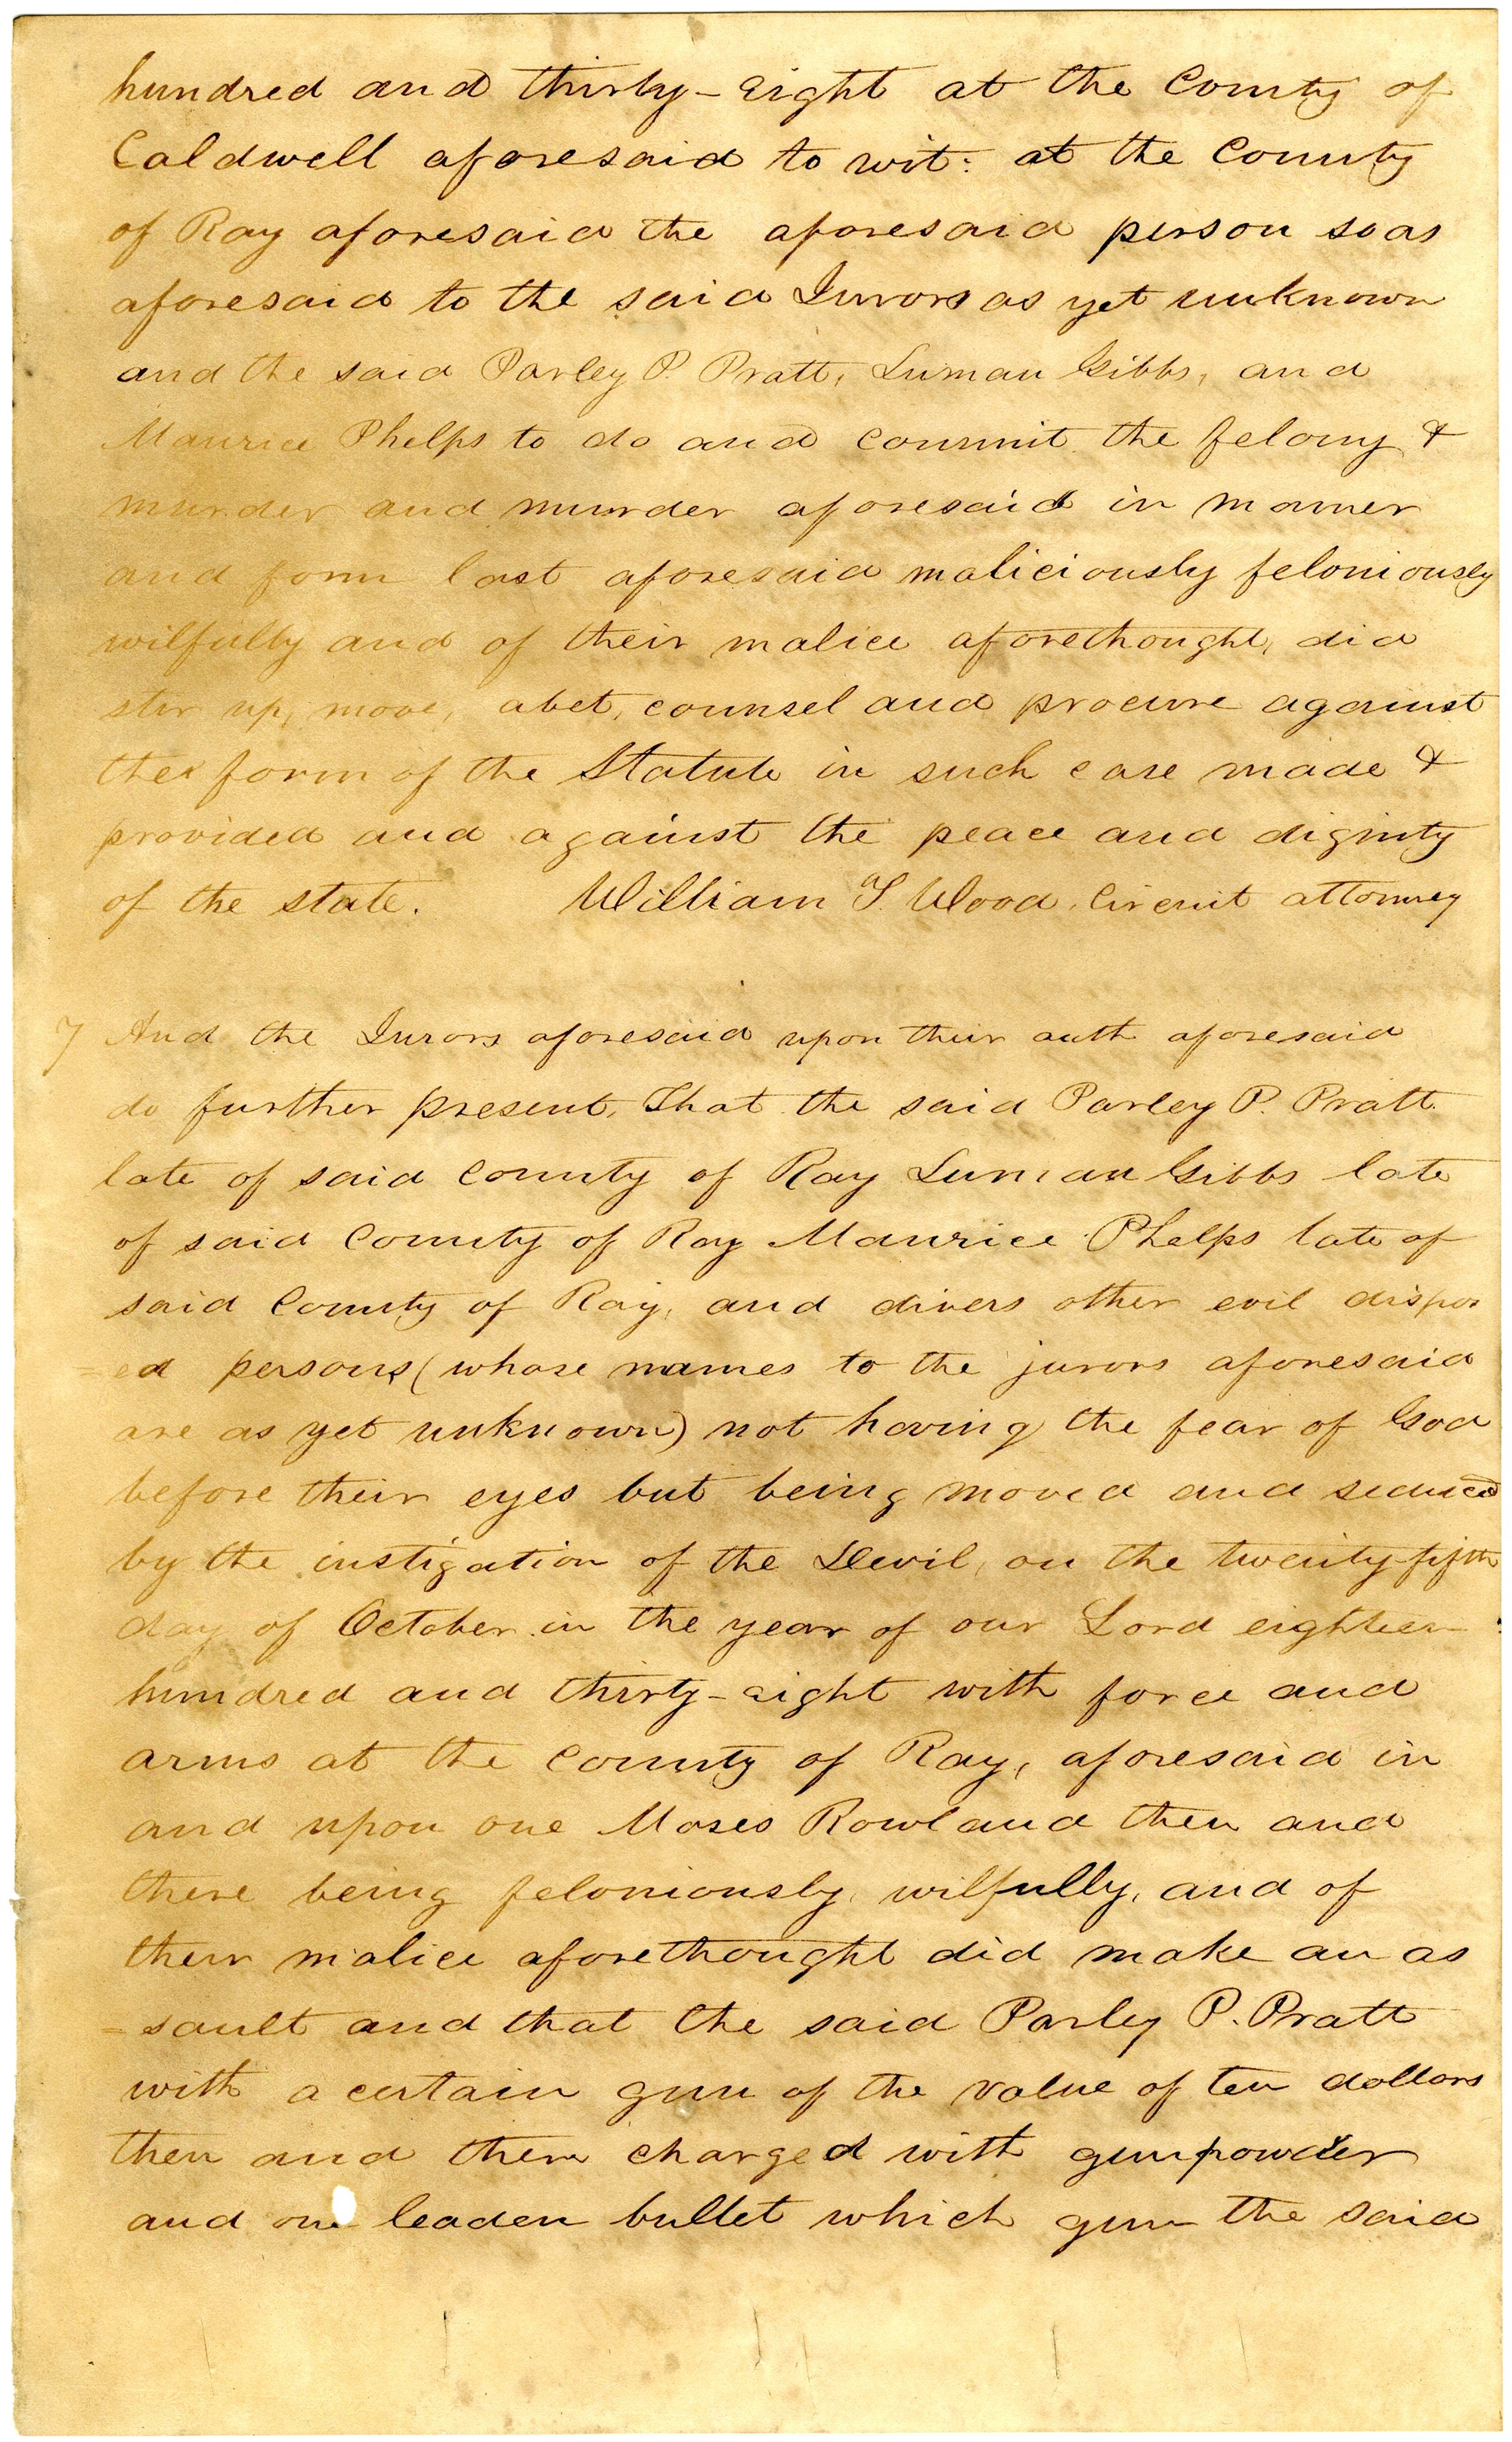 hundred and thirty-eight at the County of
Caldwell aforesaid to wit: at the County
of Ray aforesaid the aforesaid person so as
aforesaid to the said Jurors as yet unknown
and the said Parley P Pratt, Luman Gibbs, and
Maurice Phelps to do and commit the felony &
murder and murder aforesaid in manner
and form last aforesaid maliciously feloniously
wilfully and of their malice aforethought, did
stir up, move, abet, counsel and procure against
the form of the Statute in such case made &
provided and against the peace and dignity
of the state. William T. Wood, Circuit attorney
7 And the Jurors aforesaid upon their oath aforesaid
do further present, That the said Parley P. Pratt
late of said County of Ray Luman Gibbs late
of said County of Ray Maurice Phelps late of
said County of Ray, and divers other evil dispos
=ed persons (whose names to the jurors aforesaid
are as yet unknown) not having the fear of God
before their eyes but being moved and seduced
by the instigation of the Devil, on the twenty-fifth
day of October in the year of our Lord eighteen
hundred and thirty-eight with force and
arms at the County of Ray, aforesaid in
and upon one Moses Rowland then and
there being feloniously, wilfully, and of
their malice aforethought did make an as
=sault and that the said Parley P. Pratt
with a certain gun of the value of ten dollars
then and there charged with gunpowder
and one leaden bullet which gun the said